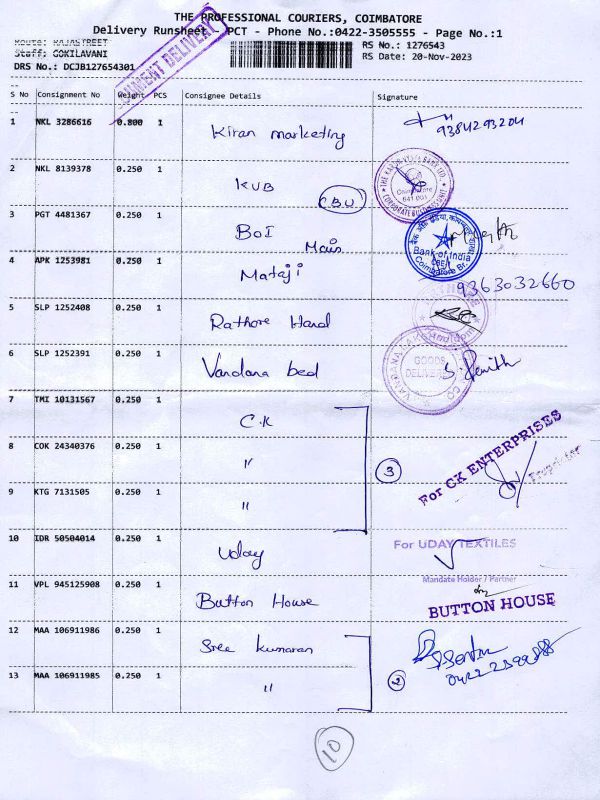 THE PROFESSIONAL COURIERS, COIMBATORE
Delivery Runsheet - PCT - Phone No.:0422-3505555 - Page No.:1
Route: RAJASTREET
Staff: GOKILAVANI
DRS No.: DCJB127654301
RS No.: 1276543
RS Date: 20-Nov-2023
DOCUMENT DELIVERY
S No Consignment No Weight PCS Consignee Details Signature
1 NKL 3286616 0.800 1 Kiran marketing 9384293204
2 NKL 8139378 0.250 1 KUB C.B.U
Coimbatore
641 001
3 PGT 4481367 0.250 1 BOI Main
Bank of India
Coimbatore Br.
4 APK 1253981 0.250 1 Mataji 9363032660
5 SLP 1252408 0.250 1 Rathore Hand
6 SLP 1252391 0.250 1 Vandana bed
GOODS
DELIVERED
7 TMI 10131567 0.250 1 C.K
8 COK 24340376 0.250 1 " 3 For CK ENTERPRISES
Proprietor
9 KTG 7131505 0.250 1 "
10 IDR 50504014 0.250 1 Uday For UDAY TEXTILES
Mandate Holder / Partner
11 VPL 945125908 0.250 1 Button House BUTTON HOUSE
12 MAA 106911986 0.250 1 Sree kumaran
13 MAA 106911985 0.250 1 " 2
10